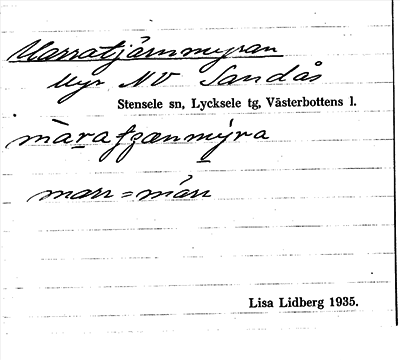 Marratjärnmyran
Myr NV Sandås
Stensele sn, Lycksele tg, Västerbottens l.
marr = mån
Lisa Lidberg 1935.